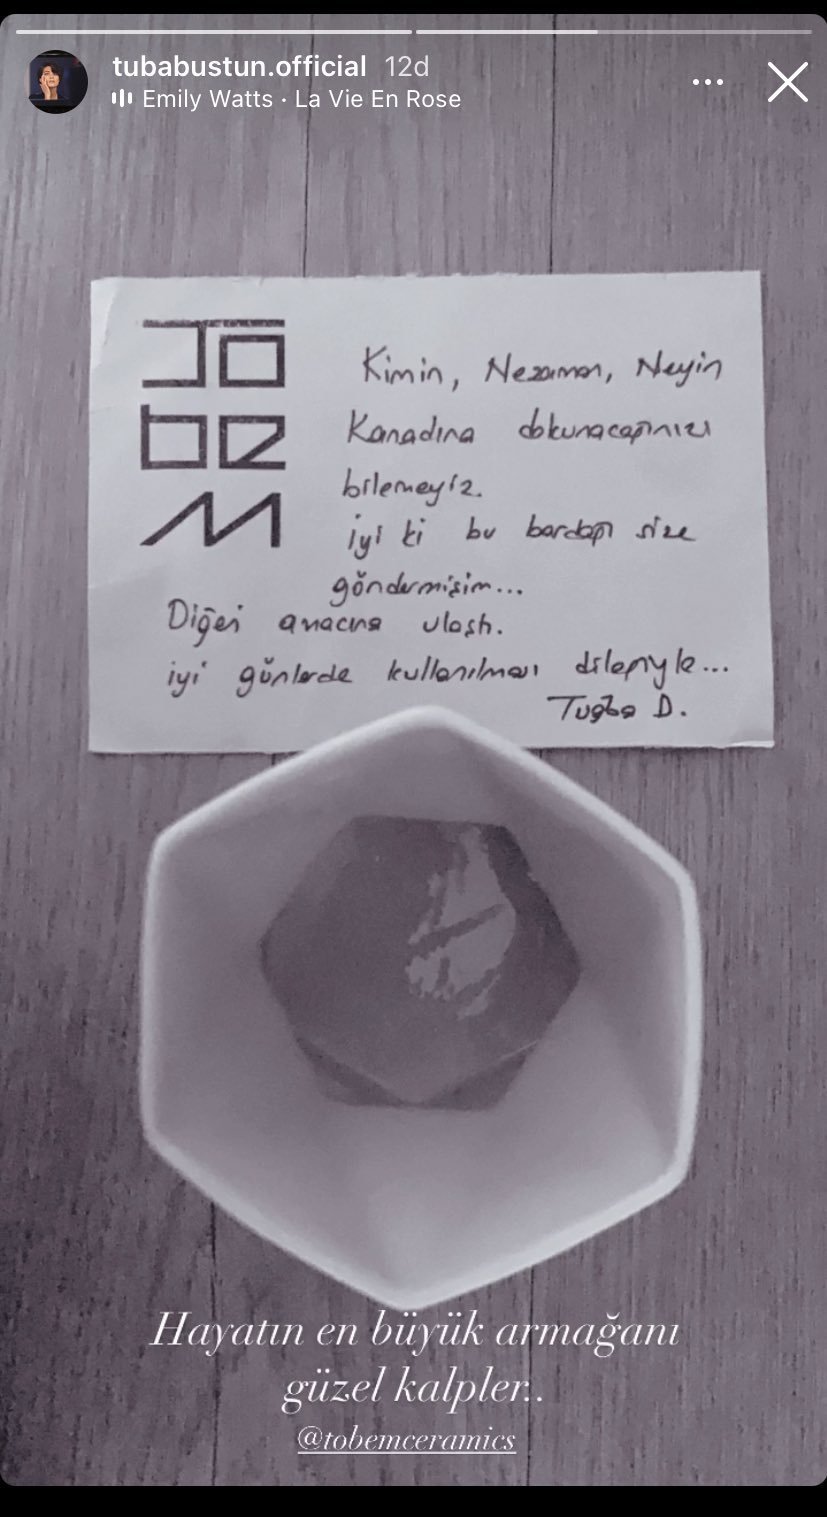 tubabustun.official 12d
Emily Watts · La Vie En Rose
TO
be
M
Kimin, Nezaman, Neyin
Kanadına dokunacağınızı
bilemeyiz.
iyi ki bu bardağı size
göndermişim...
Diğeri amacına ulaştı.
iyi günlerde kullanılması dileğiyle...
Tuğba D.
Hayatın en büyük armağanı
güzel kalpler..
@tobemceramics